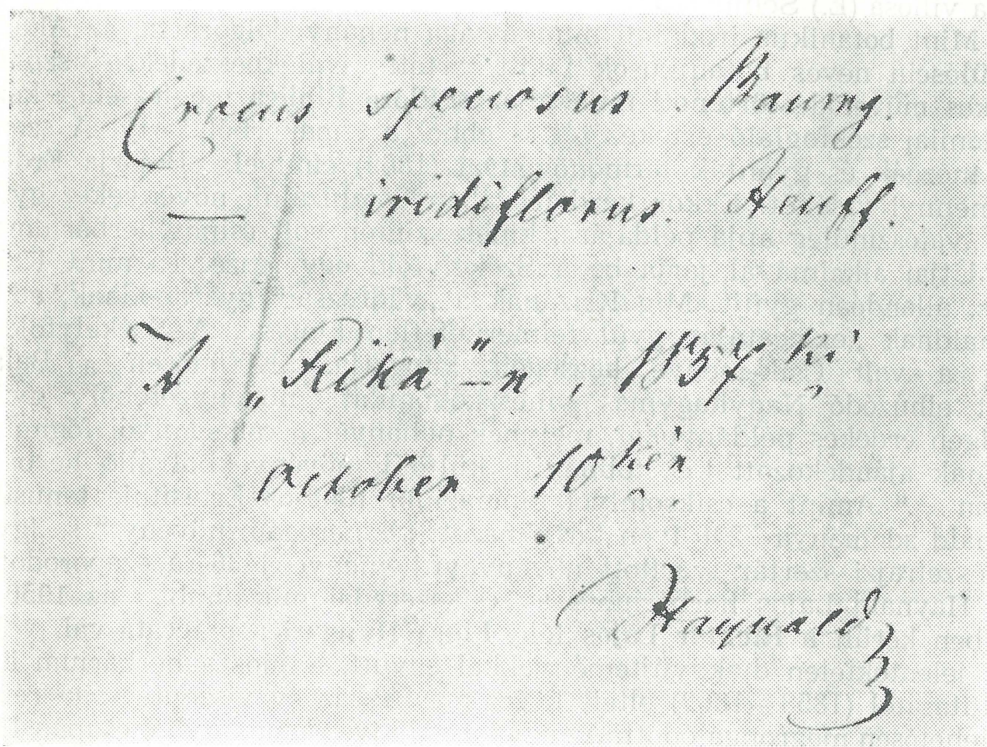 Crocus speciosus. Baumg.
— iridiflorus. Heuff.
A „Riká"-n, 1857 ki
october 10 kén
Haynald